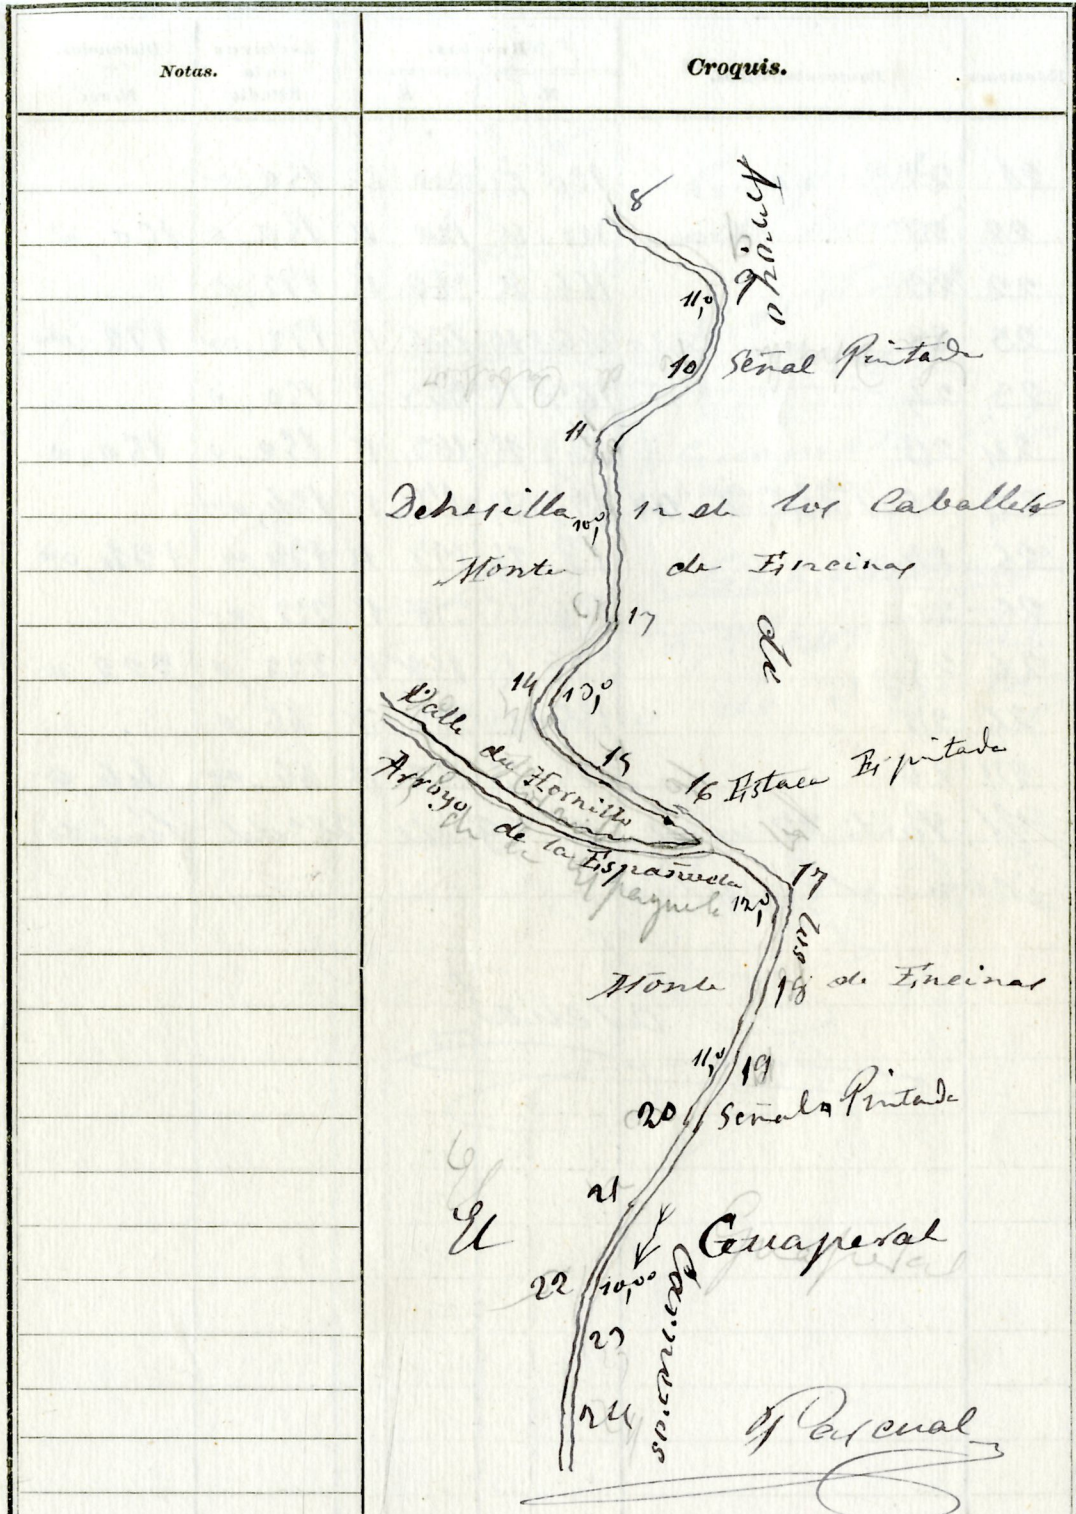 Notas.
Croquis.
8
9
11,0
10 Señal Pintada
11
Dehesilla 10,0 12 de los Caballeros
Monte de Encinas
13
de
14 13,0
Valle del Hornillo
15
16 Estaca Es pintada
Arroyo de la Españuela
17
12,0
Monte 18 de Encinas
11,0 19
20 Señal Pintada
21
El Guaperal
22 10,00
23
24
Pascual